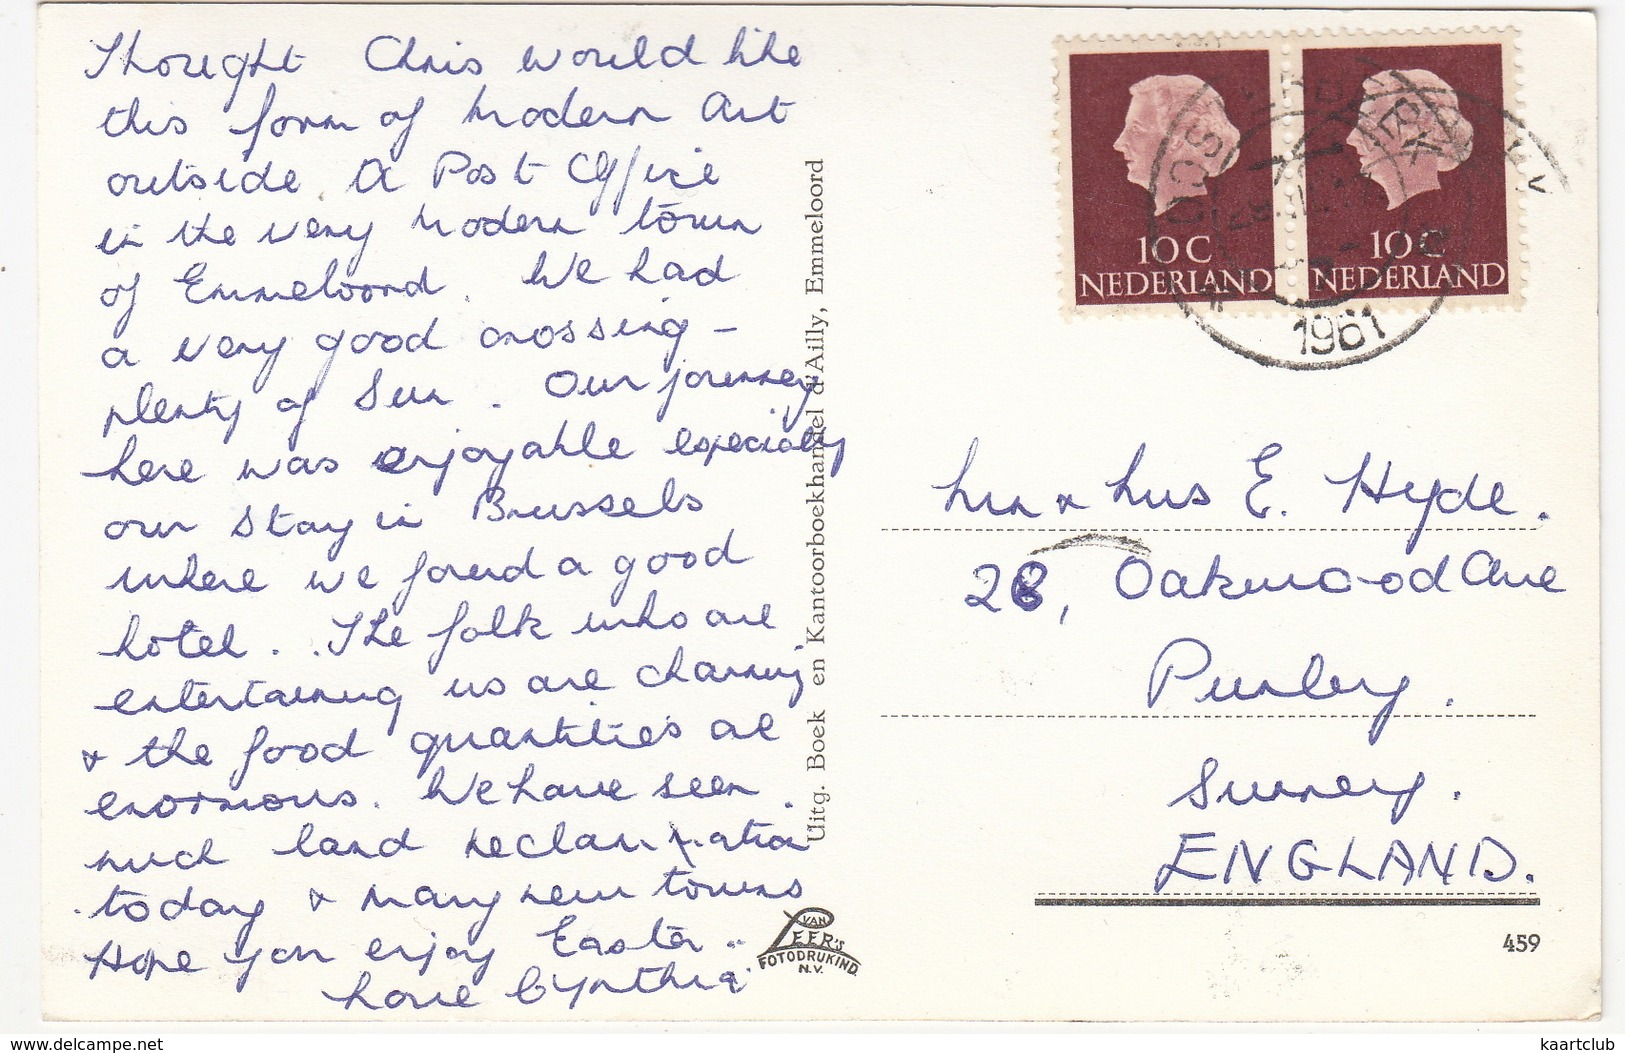 Thought Chris would like
this form of Modern Art
outside A Post Office
in the very Modern town
of Emmeloord. We had
a very good crossing –
plenty of Sun. Our journey
here was enjoyable especially
our stay in Brussels
where we found a good
hotel. . The folk who are
entertaining us are charming
& the food quantities are
enormous. We have seen
much land reclamation
today & many new towns
Hope you enjoy Easter..
Love Cynthia.
Uitg. Boek en Kantoorboekhandel d'Ailly, Emmeloord
VAN
LEER'S
FOTODRUKIND.
N.V.
10 C
NEDERLAND
10 C
NEDERLAND
1961
Mr & Mrs E. Hyde.
28, Oakwood Ave
Purley.
Surrey.
ENGLAND.
459
delcampe.net
kaartclub